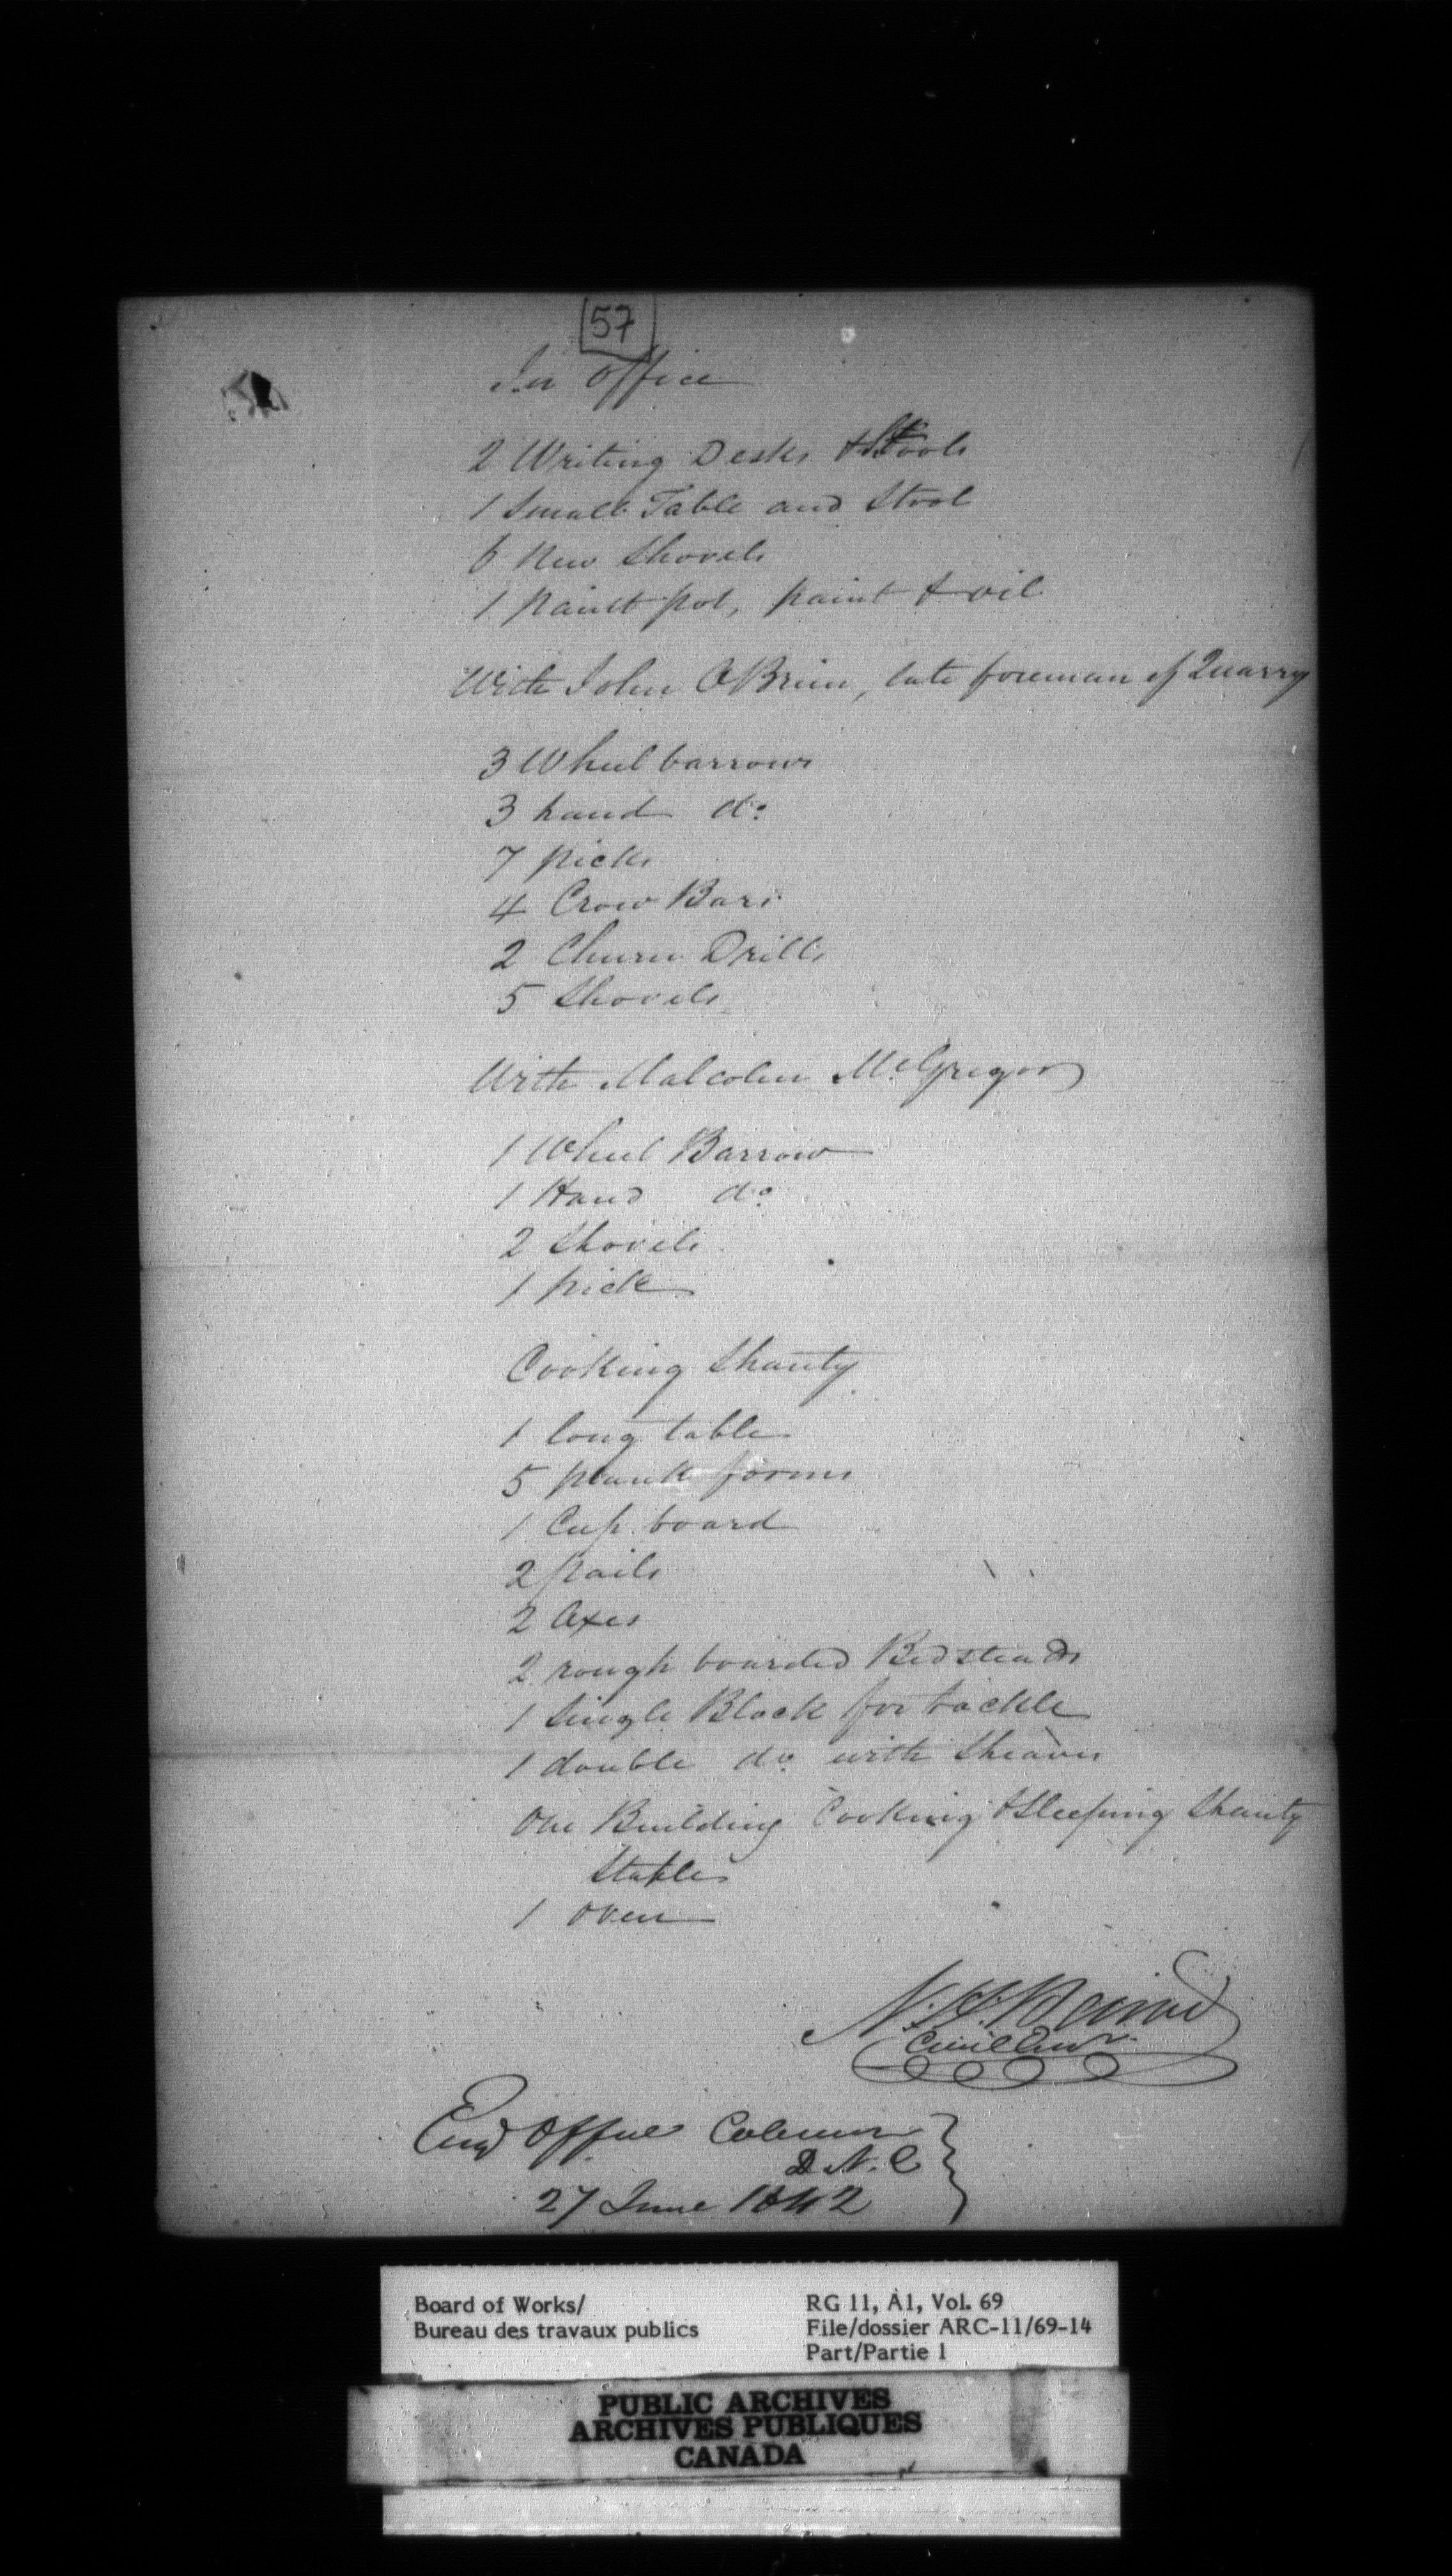 57
In Office
2 Writing Desks & Stools
1 Small Table and Stool
6 New Shovels
1 paint pot, paint & oil
With John OBrien, late foreman of Quarry
3 Wheel barrows
3 hand do
7 picks
4 Crow Bars
2 Churn Drills
5 Shovels
With Malcolm McGregor
1 Wheel Barrow
1 Hand do
2 Shovels
1 pick
Cooking Shanty
1 long table
5 plank forms
1 Cup board
2 pails
2 Axes
2 rough boarded Bedsteads
1 Single Block for tackle
1 double do with Sheaves
One Building Cooking & Sleeping Shanty
Stable
1 oven
N. H. Baird
Civil Engr.
Engr Office Colborne
D. N. C
27 June 1842
Board of Works/
Bureau des travaux publics
RG 11, A1, Vol. 69
File/dossier ARC-11/69-14
Part/Partie 1
PUBLIC ARCHIVES
ARCHIVES PUBLIQUES
CANADA